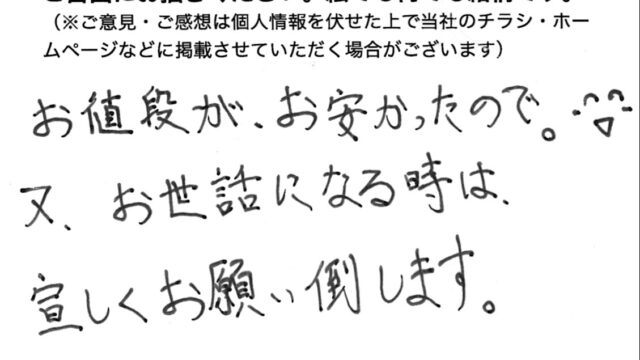 （※ご意見・ご感想は個人情報を伏せた上で当社のチラシ・ホー
ムページなどに掲載させていただく場合がございます）
お値段が、お安かったので。
又、お世話になる時は、
宜しくお願い倒します。